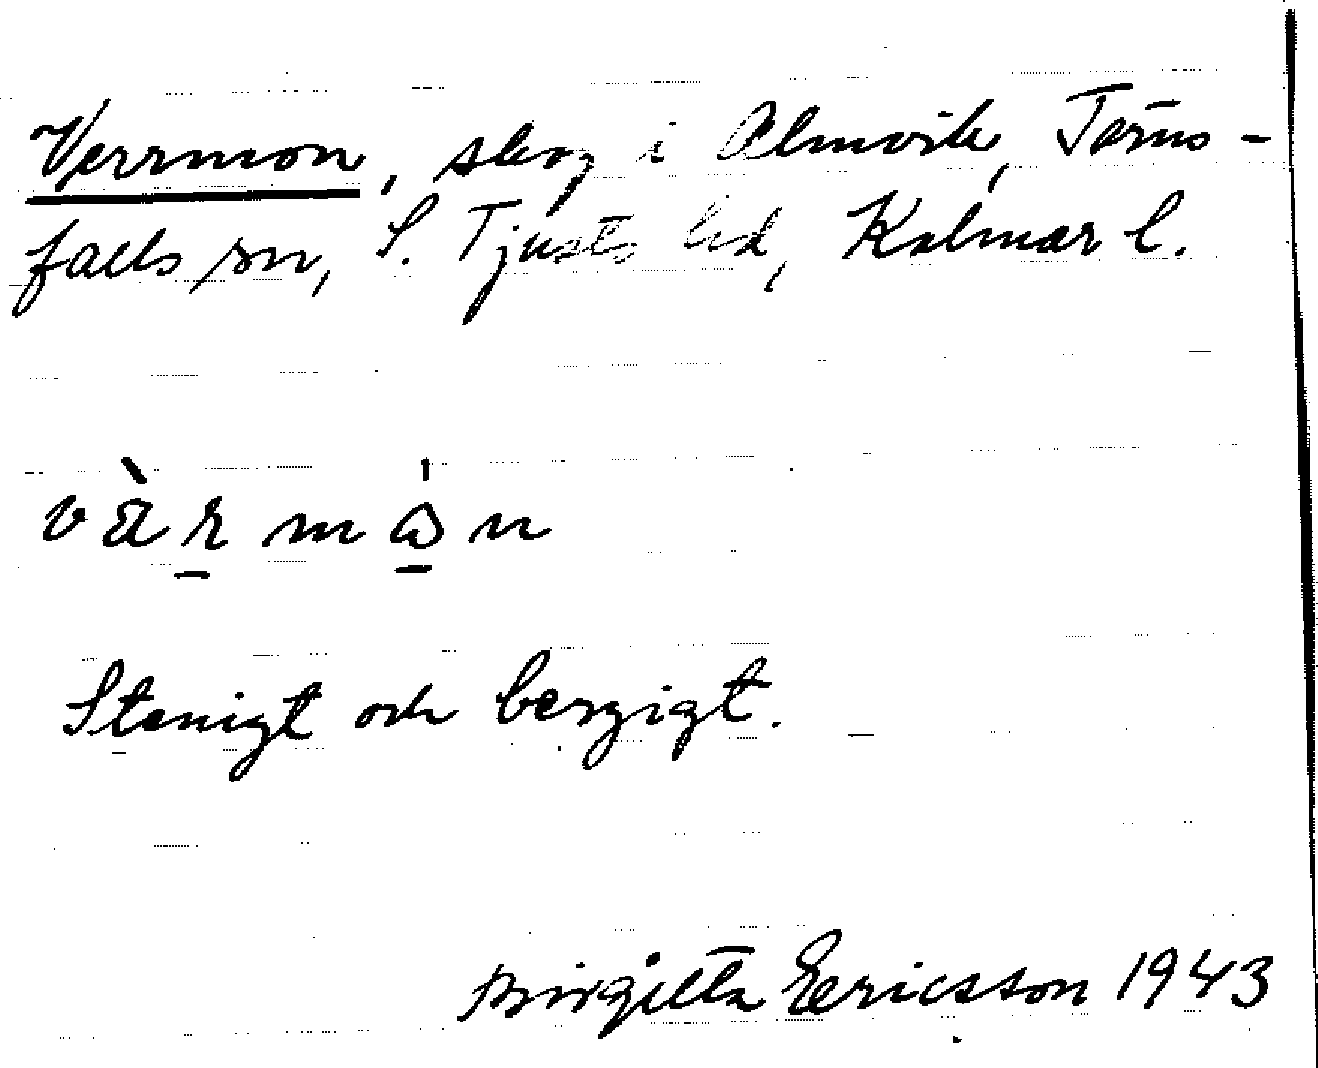 Verrmon, skog i Almvik, Törns-
falls sn, S. Tjusts hd, Kalmar l.
vàrmån
Stenigt och bergigt.
Birgitta Ericsson 1943